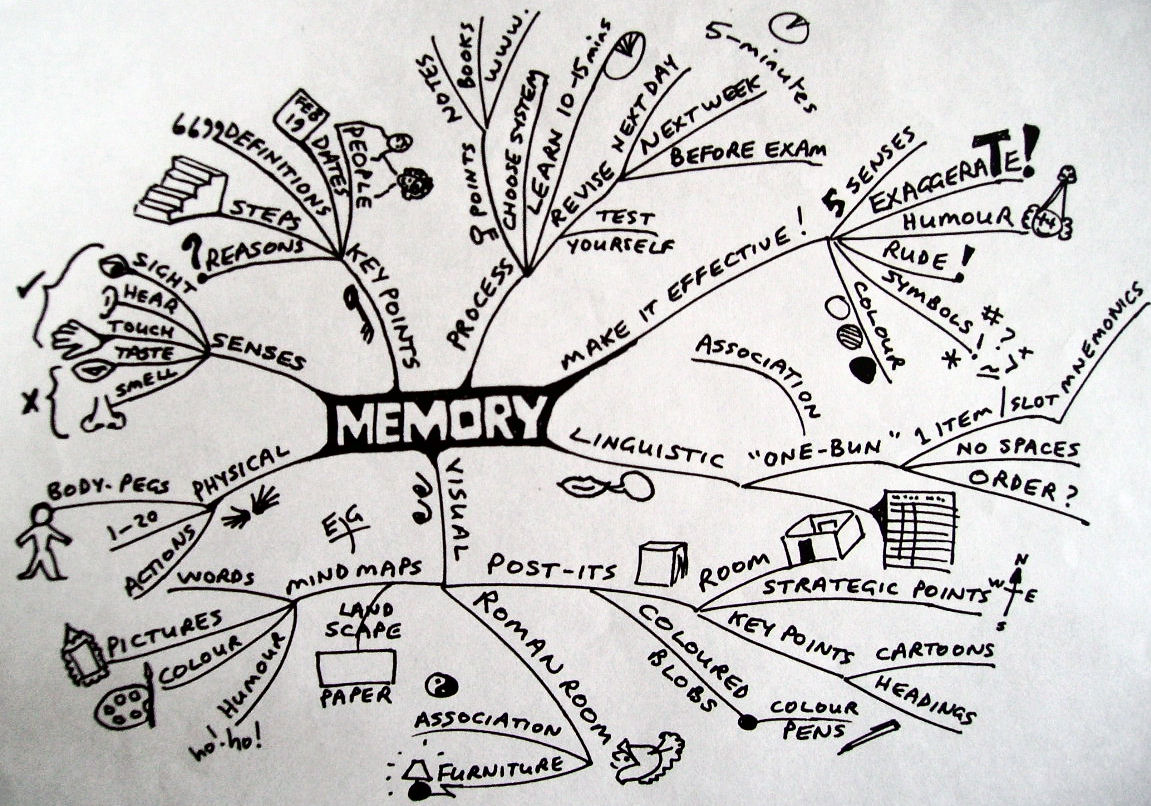 MEMORY
KEY POINTS
REASONS
?
STEPS
6699 DEFINITIONS
DATES
FEB
19
PEOPLE
PROCESS
POINTS
NOTES
BOOKS
WWW.
CHOOSE SYSTEM
LEARN 10-15 mins
REVISE
5-minutes
NEXT DAY
NEXT WEEK
BEFORE EXAM
TEST
YOURSELF
MAKE IT EFFECTIVE!
5 SENSES
EXAGGERATE!
HUMOUR
RUDE!
SYMBOLS!
# ?
*
COLOUR
LINGUISTIC
ASSOCIATION
"ONE-BUN"
1 ITEM/SLOT
MNEMONICS
NO SPACES
ORDER?
VISUAL
POST-ITS
ROOM
STRATEGIC POINTS
N
W E
S
KEY POINTS
CARTOONS
HEADINGS
COLOURED
BLOBS
COLOUR
PENS
ROMAN ROOM
ASSOCIATION
FURNITURE
MIND MAPS
EG
LAND
SCAPE
PAPER
WORDS
PICTURES
COLOUR
HUMOUR
ho! ho!
PHYSICAL
BODY-PEGS
1-20
ACTIONS
SENSES
SIGHT
HEAR
TOUCH
TASTE
SMELL
X